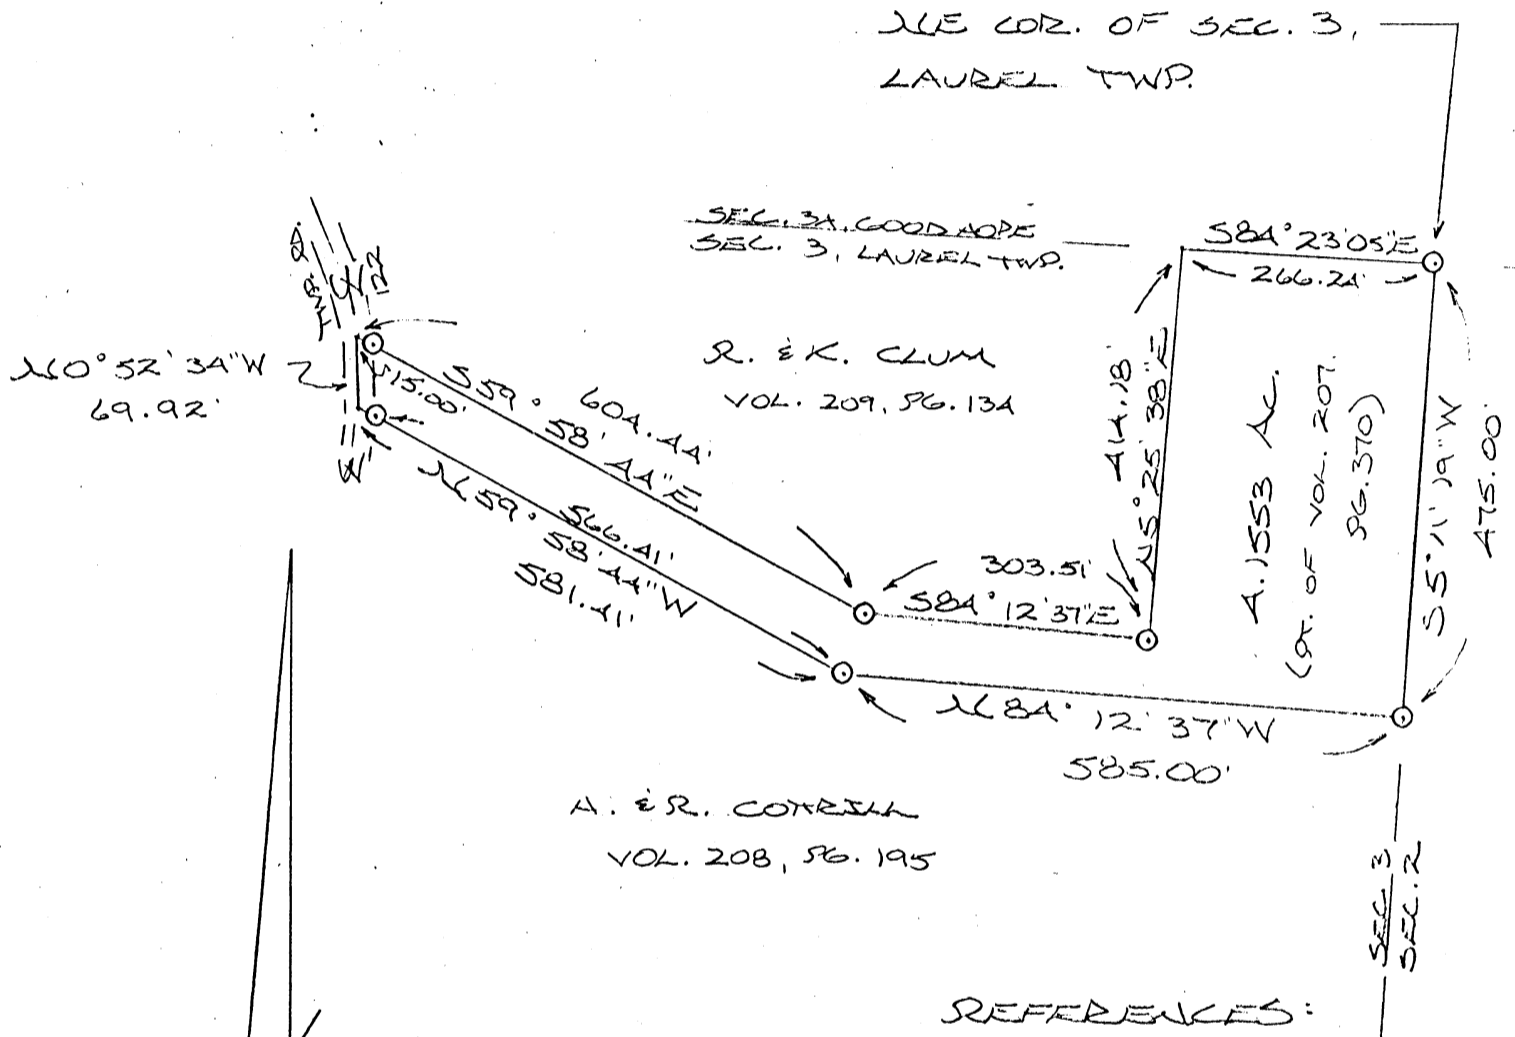 NE COR. OF SEC. 3,
LAUREL TWP.
SEC. 34, GOOD HOPE
SEC. 3, LAUREL TWP.
S84°23'05"E
266.24'
TWP. RD.
122
N0°52'34"W
69.92'
15.00'
S59°58'44"E
604.44'
R. & K. CLUM
VOL. 209, PG. 134
414.18'
N5°25'38"E
4.1553 Ac.
(PT. OF VOL. 207,
PG. 370)
S5°11'19"W
475.00'
566.41'
N59°58'44"W
581.41'
303.51'
S84°12'37"E
N84°12'37"W
585.00'
A. & R. COTTRILL
VOL. 208, PG. 195
SEC. 3
SEC. 2
REFERENCES: